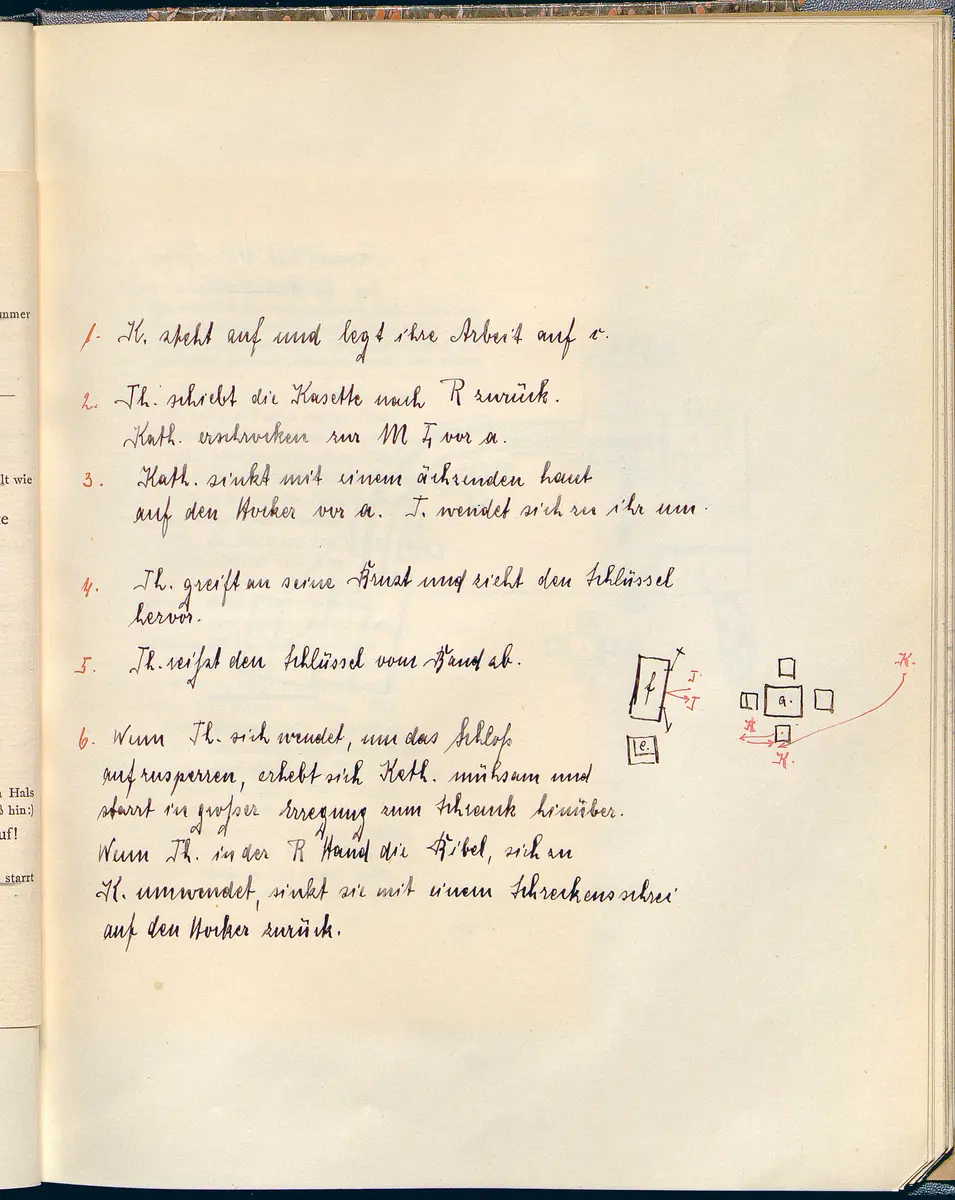 ammer
lt wie
ge
n Hals
ß hin:)
uf!
starrt
1. K. steht auf und legt ihre Arbeit auf c.
2. Th. schiebt die Kasette nach R zurück.
Kath. erschrocken zur M vor a.
3. Kath. sinkt mit einem ächzenden Laut
auf den Hocker vor a. T. wendet sich zu ihr um.
4. Th. greift an seine Brust und zieht den Schlüssel
hervor.
5. Th. reißt den Schlüssel vom Band ab.
6. Wenn Th. sich wendet, um das Schloß
aufzusperren, erhebt sich Kath. mühsam und
starrt in großer Erregung zum Schrank hinüber.
Wenn Th. in der R Hand die Bibel, sich zu
K. umwendet, sinkt sie mit einem Schreckensschrei
auf den Hocker zurück.
f
T.
T
e.
a.
K.
K
K.